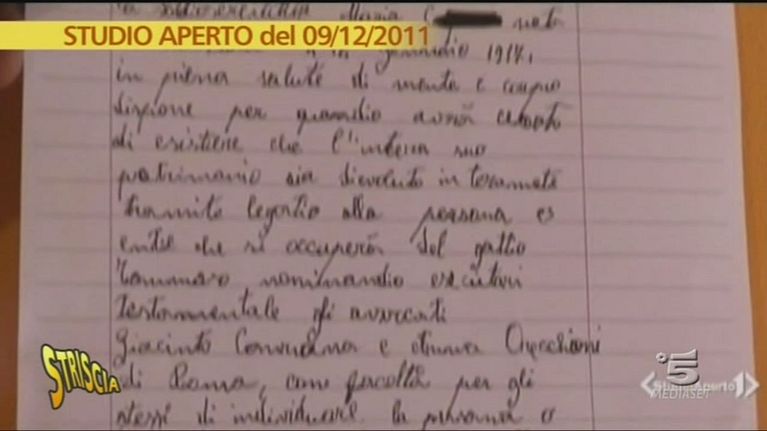 La sottoscritta Maria C nata
STUDIO APERTO del 09/12/2011
gennaio 1917,
in piena salute di mente e corpo
dispone per quando avrà cessato
di esistere che l'intero suo
patrimonio sia devoluto interamente
tramite legato alla persona o
ente che si occuperà del gatto
Tommaso nominando esecutori
testamentale gli avvocati
Giacinto e Anna Orecchioni
di Roma, con facoltà per gli
stessi di individuare la persona o
STRISCIA
5
MEDIASET
StudioAperto